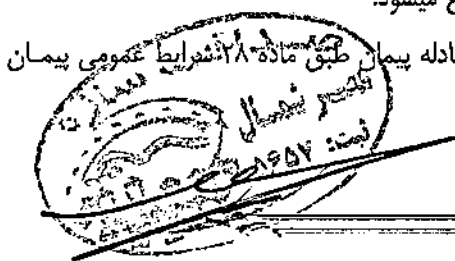 ع میشود.
ادله پیمان طبق ماده ۲۸ شرایط عمومی پیمان
قصر شمال
ثبت: ۱۶۵۷